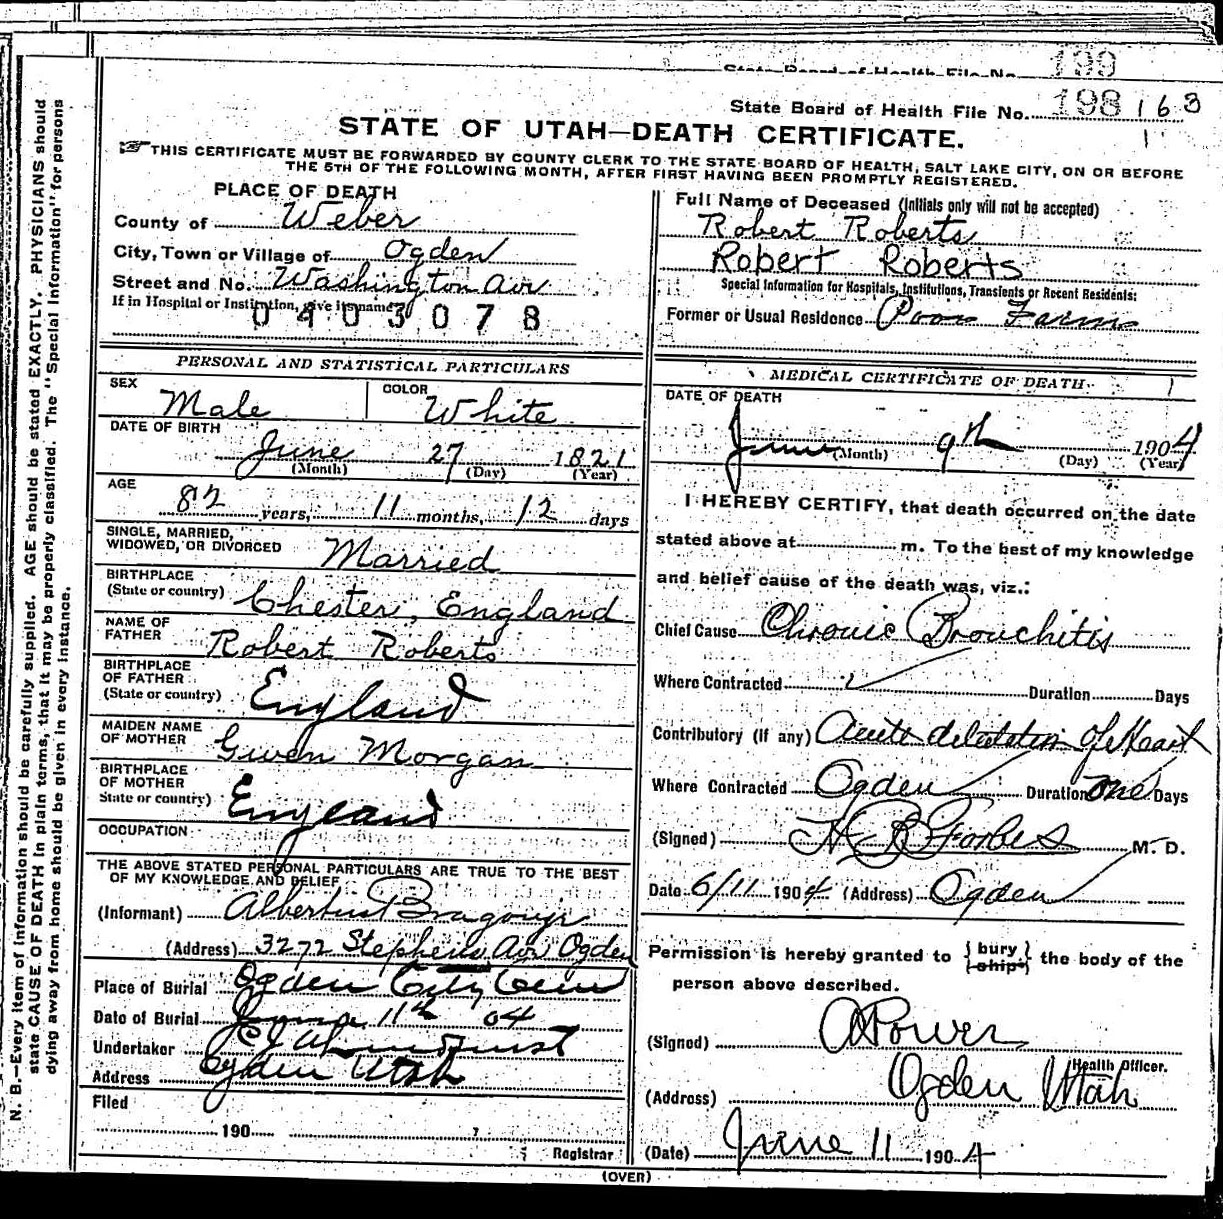 199
State Board of Health File No.
State Board of Health File No. 198 163
STATE OF UTAH—DEATH CERTIFICATE.
THIS CERTIFICATE MUST BE FORWARDED BY COUNTY CLERK TO THE STATE BOARD OF HEALTH, SALT LAKE CITY, ON OR BEFORE
THE 5TH OF THE FOLLOWING MONTH, AFTER FIRST HAVING BEEN PROMPTLY REGISTERED.
N. B.—Every item of information should be carefully supplied. AGE should be stated EXACTLY. PHYSICIANS should
state CAUSE OF DEATH in plain terms, that it may be properly classified. The "Special Information" for persons
dying away from home should be given in every instance.
PLACE OF DEATH
County of Weber
City, Town or Village of Ogden
Street and No. Washington Av
If in Hospital or Institution, give its name
0403078
PERSONAL AND STATISTICAL PARTICULARS
SEX Male COLOR White
DATE OF BIRTH
June 27 1821
(Month) (Day) (Year)
AGE
82 years, 11 months, 12 days
SINGLE, MARRIED,
WIDOWED, OR DIVORCED Married
BIRTHPLACE
(State or country) Chester, England
NAME OF
FATHER Robert Roberts
BIRTHPLACE
OF FATHER
(State or country) England
MAIDEN NAME
OF MOTHER Gwen Morgan
BIRTHPLACE
OF MOTHER
State or country) England
OCCUPATION
THE ABOVE STATED PERSONAL PARTICULARS ARE TRUE TO THE BEST
OF MY KNOWLEDGE AND BELIEF
(Informant)
(Address) 3272 Stephens Av Ogden
Place of Burial Ogden City Cem
Date of Burial June 11th 04
Undertaker
Address Ogden Utah
Filed
190
Registrar
Full Name of Deceased (Initials only will not be accepted)
Robert Roberts
Robert Roberts
Special Information for Hospitals, Institutions, Transients or Recent Residents:
Former or Usual Residence Poor Farm
MEDICAL CERTIFICATE OF DEATH
DATE OF DEATH
June 9th 1904
(Month) (Day) (Year)
I HEREBY CERTIFY, that death occurred on the date
stated above at m. To the best of my knowledge
and belief cause of the death was, viz.:
Chief Cause Chronic Bronchitis
Where Contracted Duration Days
Contributory (if any) Acute dilatation of Heart
Where Contracted Ogden Duration one Days
(Signed) H B Forbes M. D.
Date 6/11 1904 (Address) Ogden
Permission is hereby granted to { bury / ship } the body of the
person above described.
(Signed) A Power
Health Officer.
(Address) Ogden Utah
(Date) June 11 1904
(OVER)